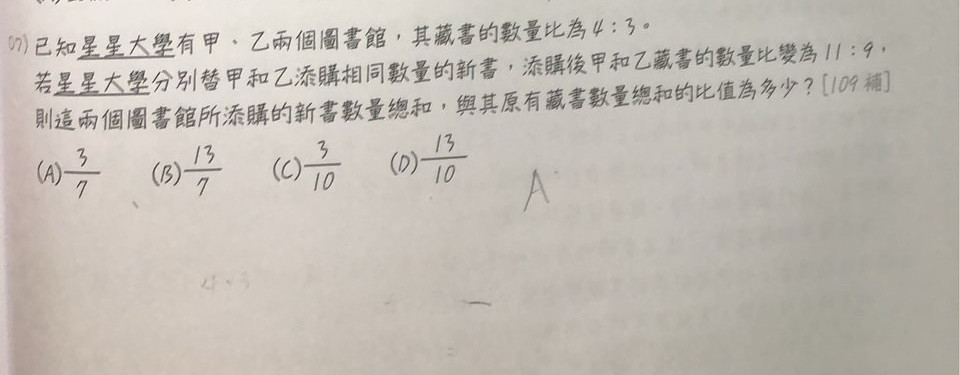 07) 已知星星大學有甲、乙兩個圖書館，其藏書的數量比為4：3。
若星星大學分別替甲和乙添購相同數量的新書，添購後甲和乙藏書的數量比變為11：9，
則這兩個圖書館所添購的新書數量總和，與其原有藏書數量總和的比值為多少？[109補]
(A) 3/7 (B) 13/7 (C) 3/10 (D) 13/10
A
4、3